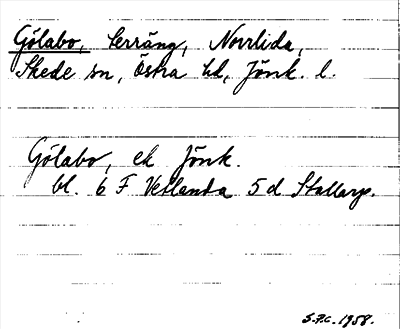 Gölabo, terräng, Norrlida,
Skede sn, Östra hd, Jönk. l.
Gölabo, ek Jönk.
bl. 6 F Vetlanda 5 d Stallarp.
S.F.C. 1958.